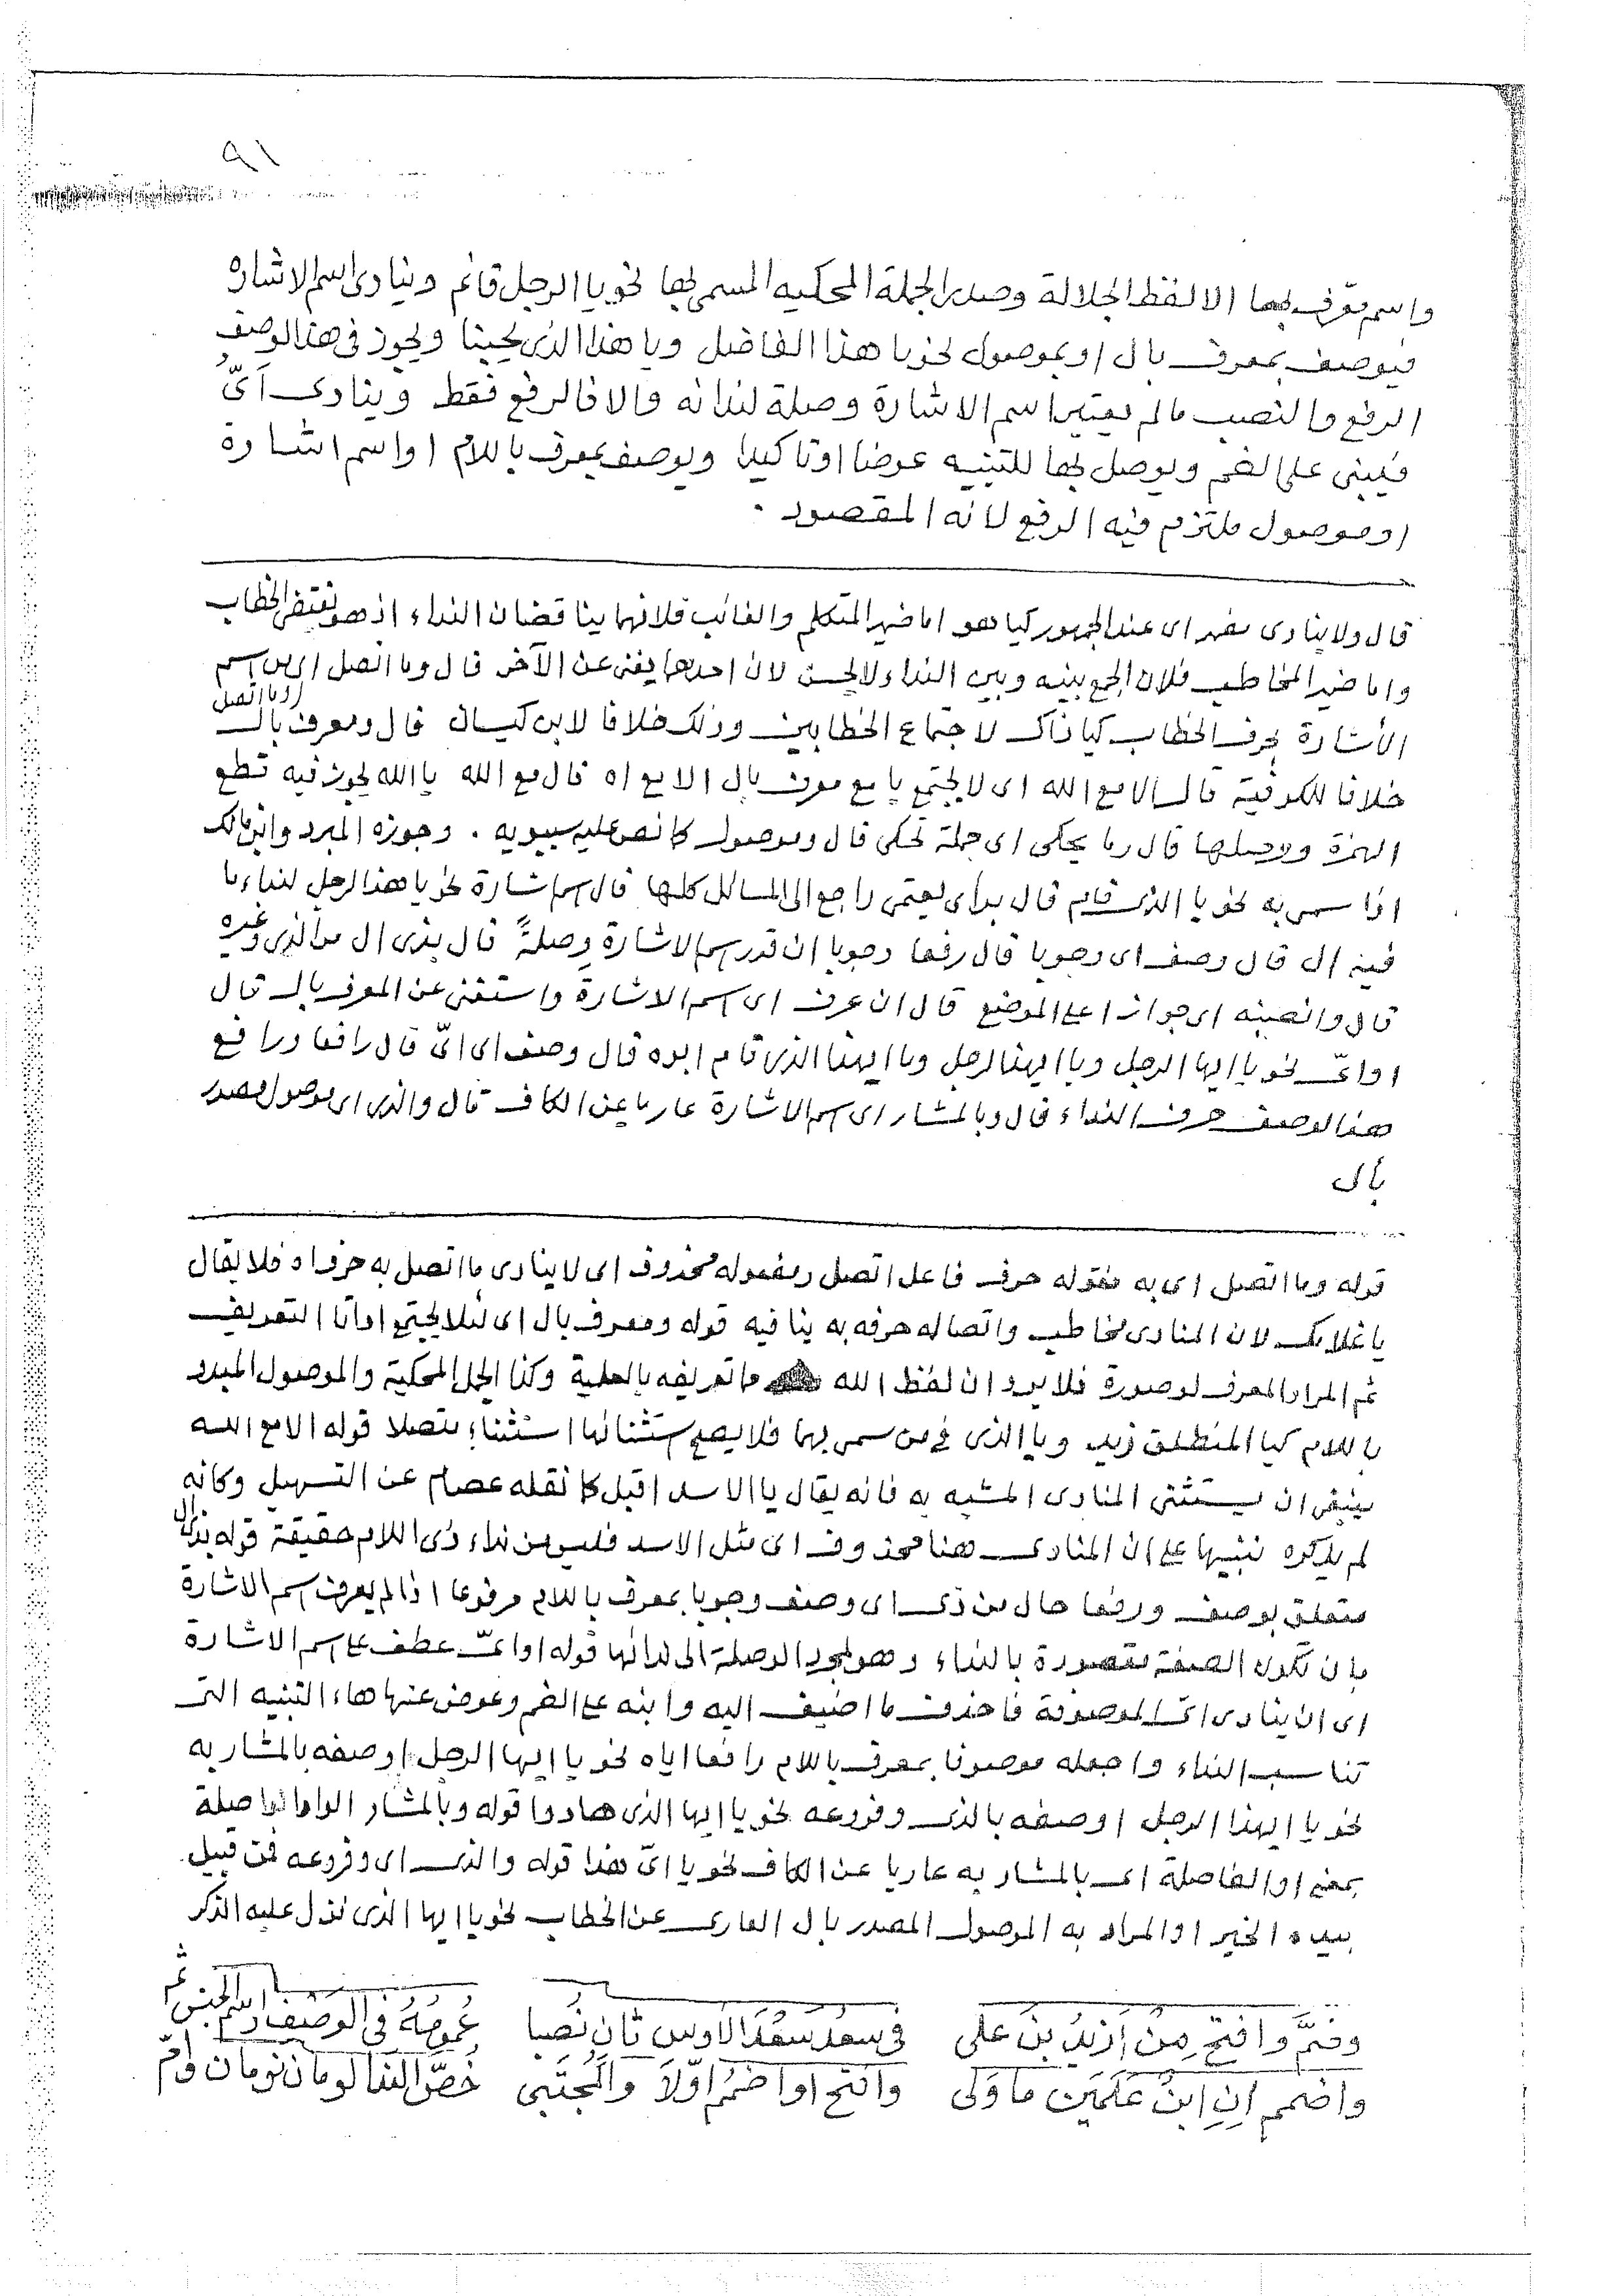 ٩١
واسم معرف بها الا لفظ الجلالة وصدر الجملة المحكيه المسمى بها نحو يا الرجل قائم وينادى اسم الاشاره
فيوصف بمعرف بال او بموصول نحو يا هذا الفاضل ويا هذا الذى يحبنا ويجوز فى هذا الوصف
الرفع والنصب ما لم يعتبر اسم الاشارة وصلة لندائه والا فالرفع فقط وينادى أىُّ
فيبنى على الضم ويوصل بها للتنبيه عوضا او تاكيدا ويوصف بمعرف باللام او اسم اشارة
او موصول ملتزم فيه الرفع لانه المقصود .
قال ولا ينادى مضمر اى عند الجمهور كيا هو اما ضمير المتكلم والغائب فلانهما يناقضان النداء اذ هو يقتضى الخطاب
واما ضمير المخاطب فلان الجمع بينه وبين النداء لا يحسن لان احدهما يغنى عن الآخر قال وما اتصل اى من اسم
الأشارة بحرف الخطاب كيا ذاك لاجتماع الخطابين وذلك خلافا لابن كيسان قال ومعرف بال
خلافا للكوفية قال الا مع الله اى لا يجتمع يا مع معرف بال الا مع اه قال مع الله يا الله يجوز فيه قطع
الهمزة ووصلها قال وما يحكى اى جملة تحكى قال وموصول كما نص عليه سيبويه . وجوزه المبرد وابن مالك
اذا سمى به نحو يا الذى قام قال راجع الى المسائل كلها قال اسم اشارة نحو يا هذا الرجل لنداء ما
فيه ال قال وصف اى وجوبا قال رفعا وجوبا ان قدر اسم الاشارة وصلةً قال بذى ال من الذى وغيره
قال وانصبنه اى جوازا على الموضع قال ان عرف اى اسم الاشارة واستغنى عن المعرف بال قال
او اىّ نحو يا ايها الرجل ويا ايهذا الرجل ويا ايهذا الذى قام ابوه قال وصف اى اىّ قال رافعا ورافع
هذا الوصف حرف النداء قال وبالمشار اى اسم الاشارة عاريا عن الكاف قال والذى اى موصول مصدر
بال
قوله وما اتصل اى به فقوله حرف فاعل اتصل ومفعوله محذوف اى لا ينادى ما اتصل به حرف اه فلا يقال
يا غلامك لان المنادى مخاطب واتصاله حرفه به ينافيه قوله ومعرف بال اى لئلا يجتمع اداتا التعريف
ثم المراد المعرف لو صورة فلا يرد ان لفظ الله ما تعريفه بالعلمية وكذا الجمل المحكية والموصول المبدو
باللام كيا المنطلق زيد ويا الذى فى من سمى بهما فلا يصح استثنائها استثناء متصلا قوله الا مع الله
ينبغى ان يستثنى المنادى المشبه به فانه يقال يا الاسد اقبل كما نقله عصام عن التسهيل وكانه
لم يذكره تنبيها على ان المنادى هنا محذوف اى مثل الاسد فليس من نداء ذى اللام حقيقة قوله بذى ال
متعلق بوصف ورفعا حال من ذى اى وصف وجوبا بمعرف باللام مرفوعا اذا لم يعرف اسم الاشارة
بان تكون الصفة مقصودة بالنداء وهو لمجرد الوصلة الى ندائها قوله او اىّ عطف على اسم الاشارة
اى ان ينادى اىّ الموصوفة فاحذف ما اضيف اليه وابنه على الضم وعوض عنها هاء التنبيه التى
تناسب النداء واجعله موصوفا بمعرف باللام رافعا اياه نحو يا ايها الرجل او صفه بالمشار به
نحو يا ايهذا الرجل او صفه بالذى وفروعه نحو يا ايها الذى هادوا قوله وبالمشار الواو الواصلة
بمعنى او الفاصلة اى بالمشار به عاريا عن الكاف نحو يا اىّ هذا قوله والذى اى وفروعه فمن قبيل
بيده الخير او المراد به الموصول المصدر بال العارى عن الخطاب نحو يا ايها الذى نزل عليه الذكر
وضمَّ وافتح مِنْ أزيدُ بنَ على فى سعدُ سَعْدَ الأوس ثان نُصبا عُمومُهُ فى الوصفِ واسم الجنس ثم
واضمم انِ ابنُ عَلَمَين ما وَلى وافتح او اضمُم اوّلا والمُجتَبى خُصَّ الندا لومان نومان وأمّ